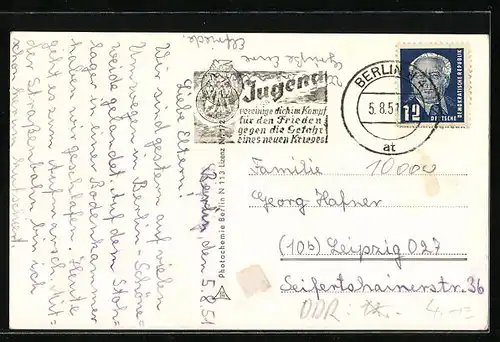 Berlin, den 5.8.51
Liebe Eltern!
Wir sind gestern auf vielen
Umwegen in Berlin-Schöne-
weide gelandet. Auf dem Stoh-
lager in einer Bodenkammer
haben wir geschlafen. Heute
gibt es einen Aufmarsch. Mit
der Straßenbahn bin ich
schon
Grüße Eure
Elfriede.
Jugend
vereinige dich im Kampf
für den Frieden
gegen die Gefahr
eines neuen Krieges!
BERLIN
5.8.51
at
12
DEUTSCHE
DEMOKRATISCHE REPUBLIK
Photochemie Berlin N 113
Familie
10000
Georg Hafner
(10b) Leipzig O27
Seifertshainerstr. 36
DDR
4.-